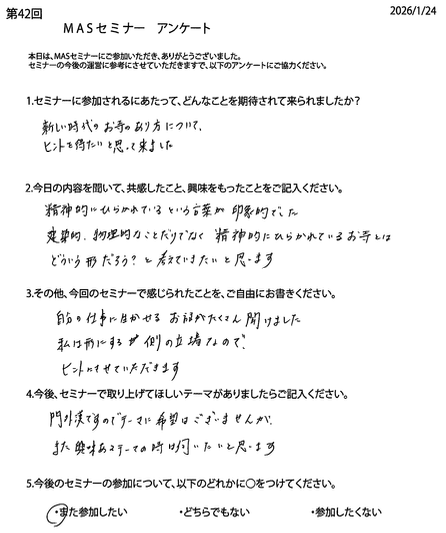 第42回
2026/1/24
MASセミナー　アンケート
本日は、MASセミナーにご参加いただき、ありがとうございました。
セミナーの今後の運営に参考にさせていただきますで、以下のアンケートにご協力ください。
1.セミナーに参加されるにあたって、どんなことを期待されて来られましたか?
新しい時代のお寺のあり方について、
ヒントを得たいと思って来ました
2.今日の内容を聞いて、共感したこと、興味をもったことをご記入ください。
精神的にひらかれているという言葉が印象的でした
建築的、物理的なことだけでなく精神的にひらかれているお寺とは
どういう形だろう?と考えていきたいと思います
3.その他、今回のセミナーで感じられたことを、ご自由にお書きください。
自分の仕事に活かせるお話がたくさん聞けました
私は形にする側の立場なので、
ヒントにさせていただきます
4.今後、セミナーで取り上げてほしいテーマがありましたらご記入ください。
門外漢ですのでテーマに希望はございませんが、
また興味あるテーマの時は伺いたいと思います
5.今後のセミナーの参加について、以下のどれかに○をつけてください。
・また参加したい　・どちらでもない　・参加したくない